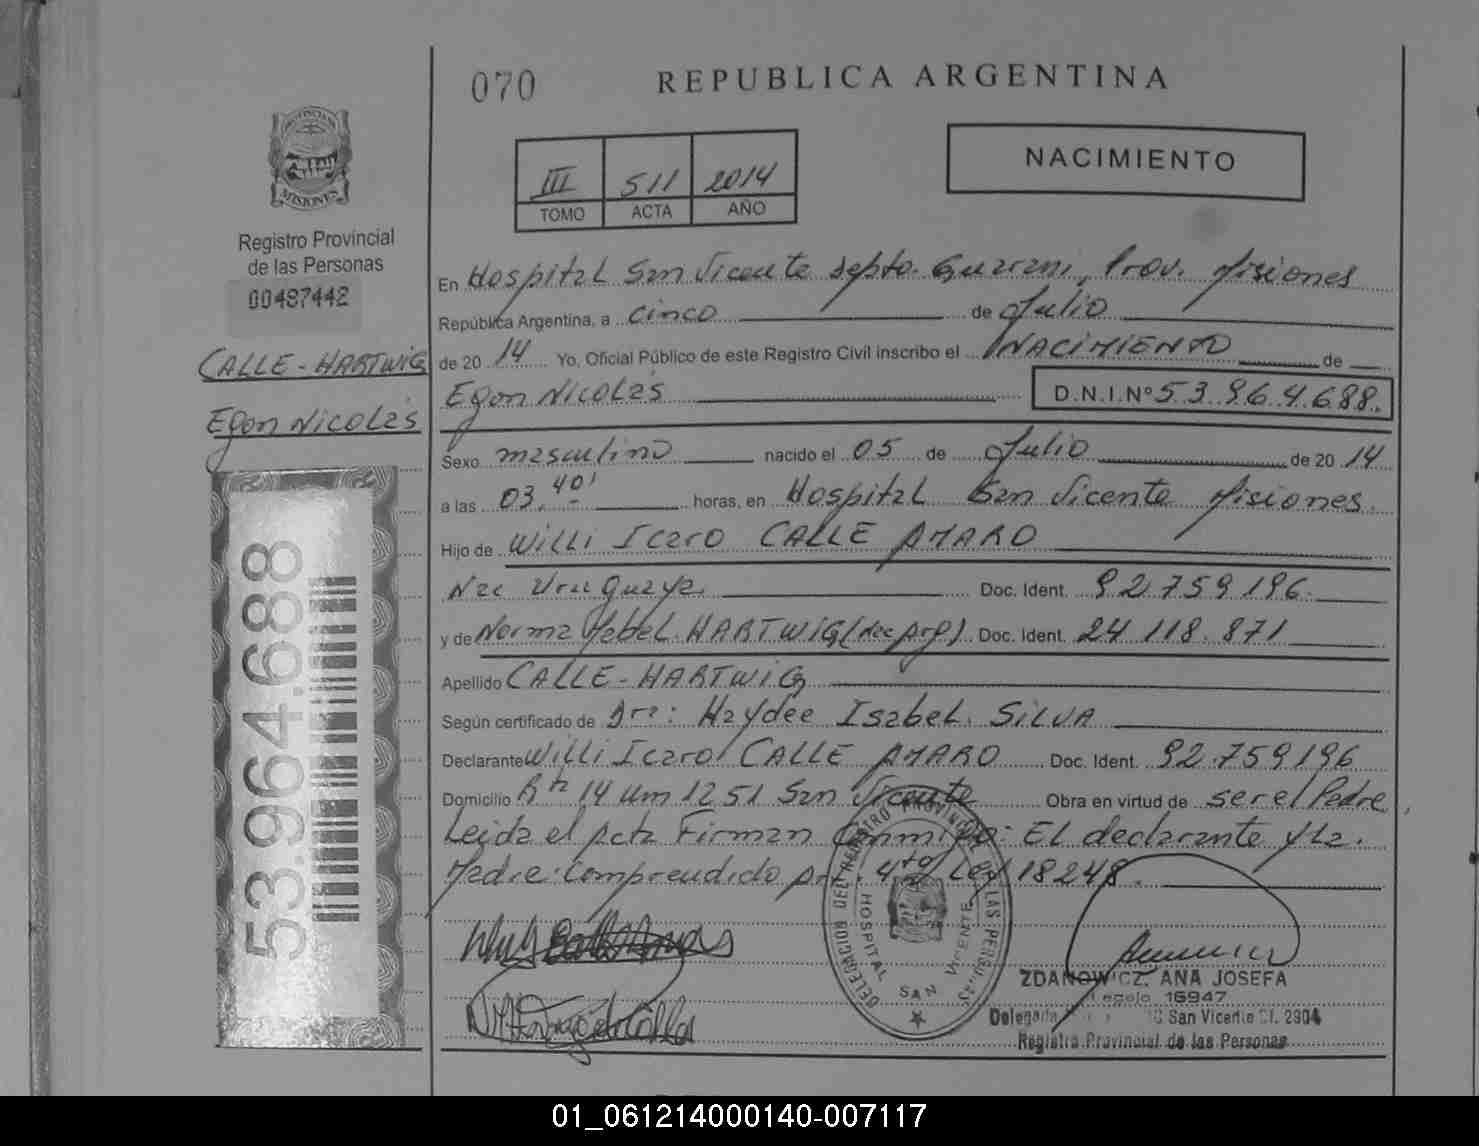 070
REPUBLICA ARGENTINA
PROVINCIA DE
MISIONES
III 511 2014
TOMO ACTA AÑO
NACIMIENTO
Registro Provincial
de las Personas
00487442
CALLE - HARTWIG
Egon Nicolás
53.964.688
En Hospital San Vicente Depto. Guaraní, Prov. Misiones
República Argentina, a cinco de Julio
de 20 14 Yo, Oficial Público de este Registro Civil inscribo el NACIMIENTO de
Egon Nicolás D.N.I.Nº 53.964.688.
Sexo masculino nacido el 05 de Julio de 20 14
a las 03,40' horas, en Hospital San Vicente Misiones.
Hijo de Willi Icaro CALLE AMARO
Nac Uruguaya Doc. Ident. 92.759.196.
y de Norma Mabel HARTWIG (Nac Arg). Doc. Ident. 24.118.871
Apellido CALLE - HARTWIG
Según certificado de Dra: Haydee Isabel SILVA
Declarante Willi Icaro CALLE AMARO Doc. Ident. 92.759.196
Domicilio Rta 14 Km 1251 San Vicente Obra en virtud de ser el Padre
Leída el Acta Firman Conmigo: El declarante y La
Madre: Comprendido Art. 4to Ley 18248.
DELEGACION DEL REGISTRO PROVINCIAL DE LAS PERSONAS
HOSPITAL SAN VICENTE
ZDANOWICZ, ANA JOSEFA
Legajo 16947
Delegada San Vicente Cl. 2904
Registro Provincial de las Personas
01_061214000140-007117